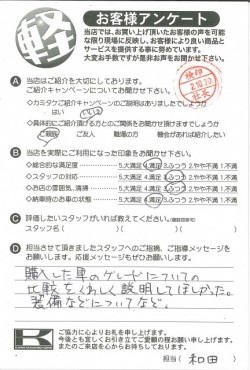 軽
お客様アンケート
当店では、お買い上げ頂いたお客様の声を可能
な限り現場に反映し、お客様により良い商品と
サービスを提供する事に努めています。
大変お手数ですが是非お声をお聞かせ下さい。
A 当店はご紹介を大切にしております。
ご紹介キャンペーンについてお聞かせ下さい。
・カミタケご紹介キャンペーンのご説明はありましたでしょうか
はい いいえ
・具体的にご紹介が頂ける方とのご関係をお聞かせ頂けますでしょうか
ご親戚 ご友人 職場の方 機会があれば紹介したい
B 当店を実際ご利用になった印象をお聞かせ下さい。
◇総合的な満足度 5.大満足 4.満足 3.ふつう 2.やや不満 1.不満
◇スタッフの対応 5.大満足 4.満足 3.ふつう 2.やや不満 1.不満
◇お店の雰囲気、清掃 5.大満足 4.満足 3.ふつう 2.やや不満 1.不満
◇納車時のお車の状態 5.大満足 4.満足 3.ふつう 2.やや不満 1.不満
C 評価したいスタッフがいれば教えてください。(複数回答可)
スタッフ名( )( )( )
D 担当させて頂きましたスタッフへのご指摘、ご指導メッセージを
お願いします。応援メッセージもぜひお聞かせ下さい。
購入した車のグレードについての
比較をくわしく説明してほしかった。
装備などについてなど。
ご協力に心よりお礼を申し上げます。
今後とも宜しくお引き立てご愛顧の程お願い申し上げます。
またのご来店を心からお待ちしております。
担当( 和田 )